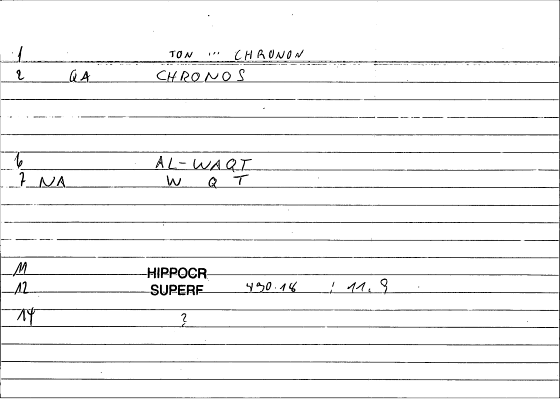 1 TON ... CHRONON
2 QA CHRONOS
6 AL-WAQT
7 NA W Q T
11 HIPPOCR
12 SUPERF 490.18 : 11.9
14 ?